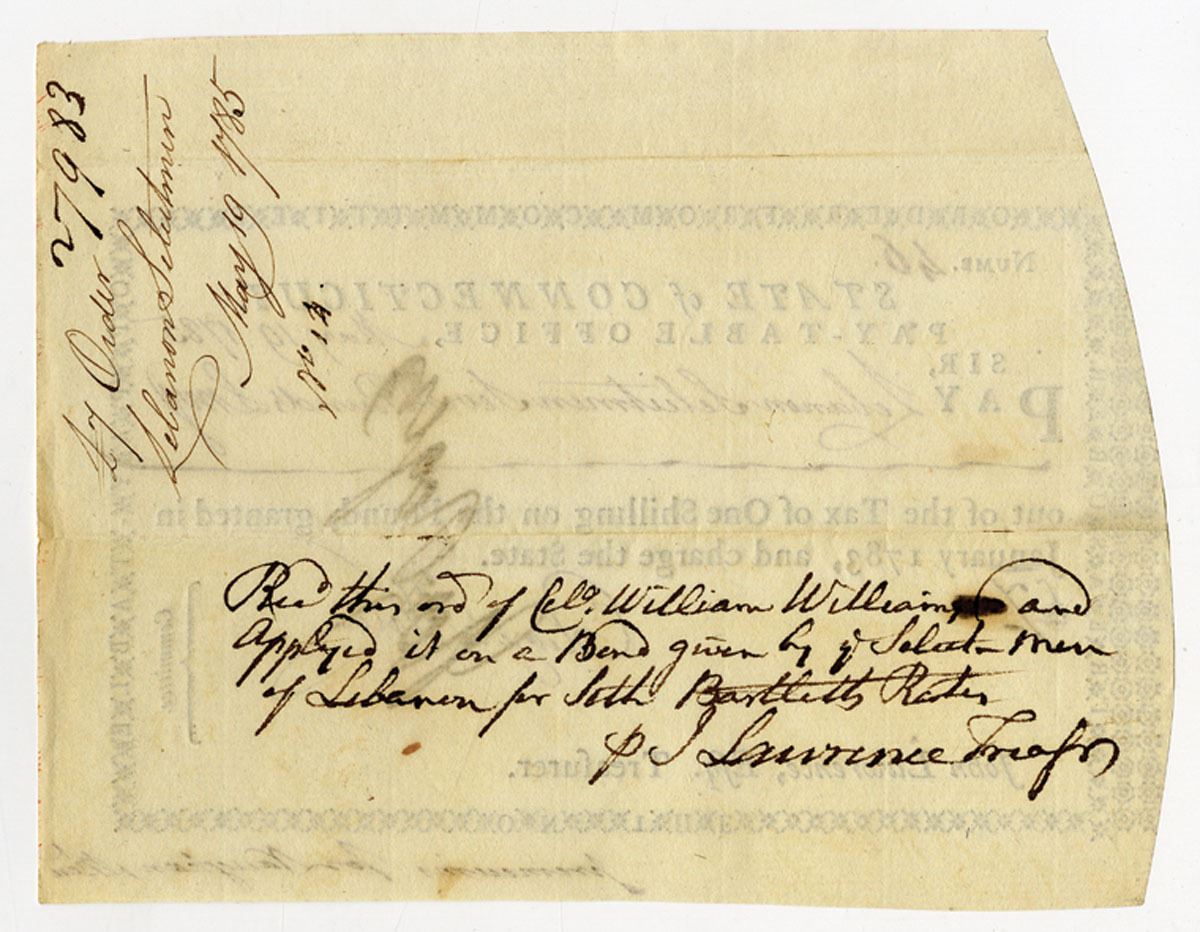 27983
Order
Lebanon Selectmen
May 19 1785
No 14
Recd this ord of Colo. William Williams and
Applyed it on a Bond given by ye Select Men
of Lebanon for Seth Bartletts Rates
p J Lawrence Treasr
NUMB. 46.
STATE of CONNECTICUT
PAY-TABLE OFFICE, May 19 178
SIR,
PAY Lebanon Selectmen
out of the Tax of One Shilling on the Pound, granted in
January 1783, and charge the State.
Committee
John Lawrence, Esq. Treasurer.